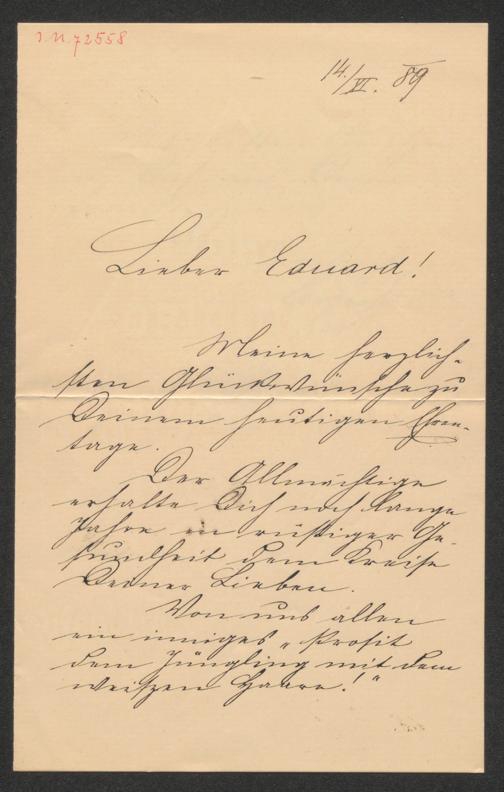 I.N. 72558
14./VI. 89
Lieber Eduard!
Meine herzlich-
sten Glückwünsche zu
Deinem heutigen Ehren-
tage.
Der Allmächtige
erhalte Dich noch lange
Jahre in rüstiger Ge-
sundheit dem Kreise
Deiner Lieben.
Von uns allen
ein inniges „Prosit
dem Jüngling mit dem
weißen Haare!“